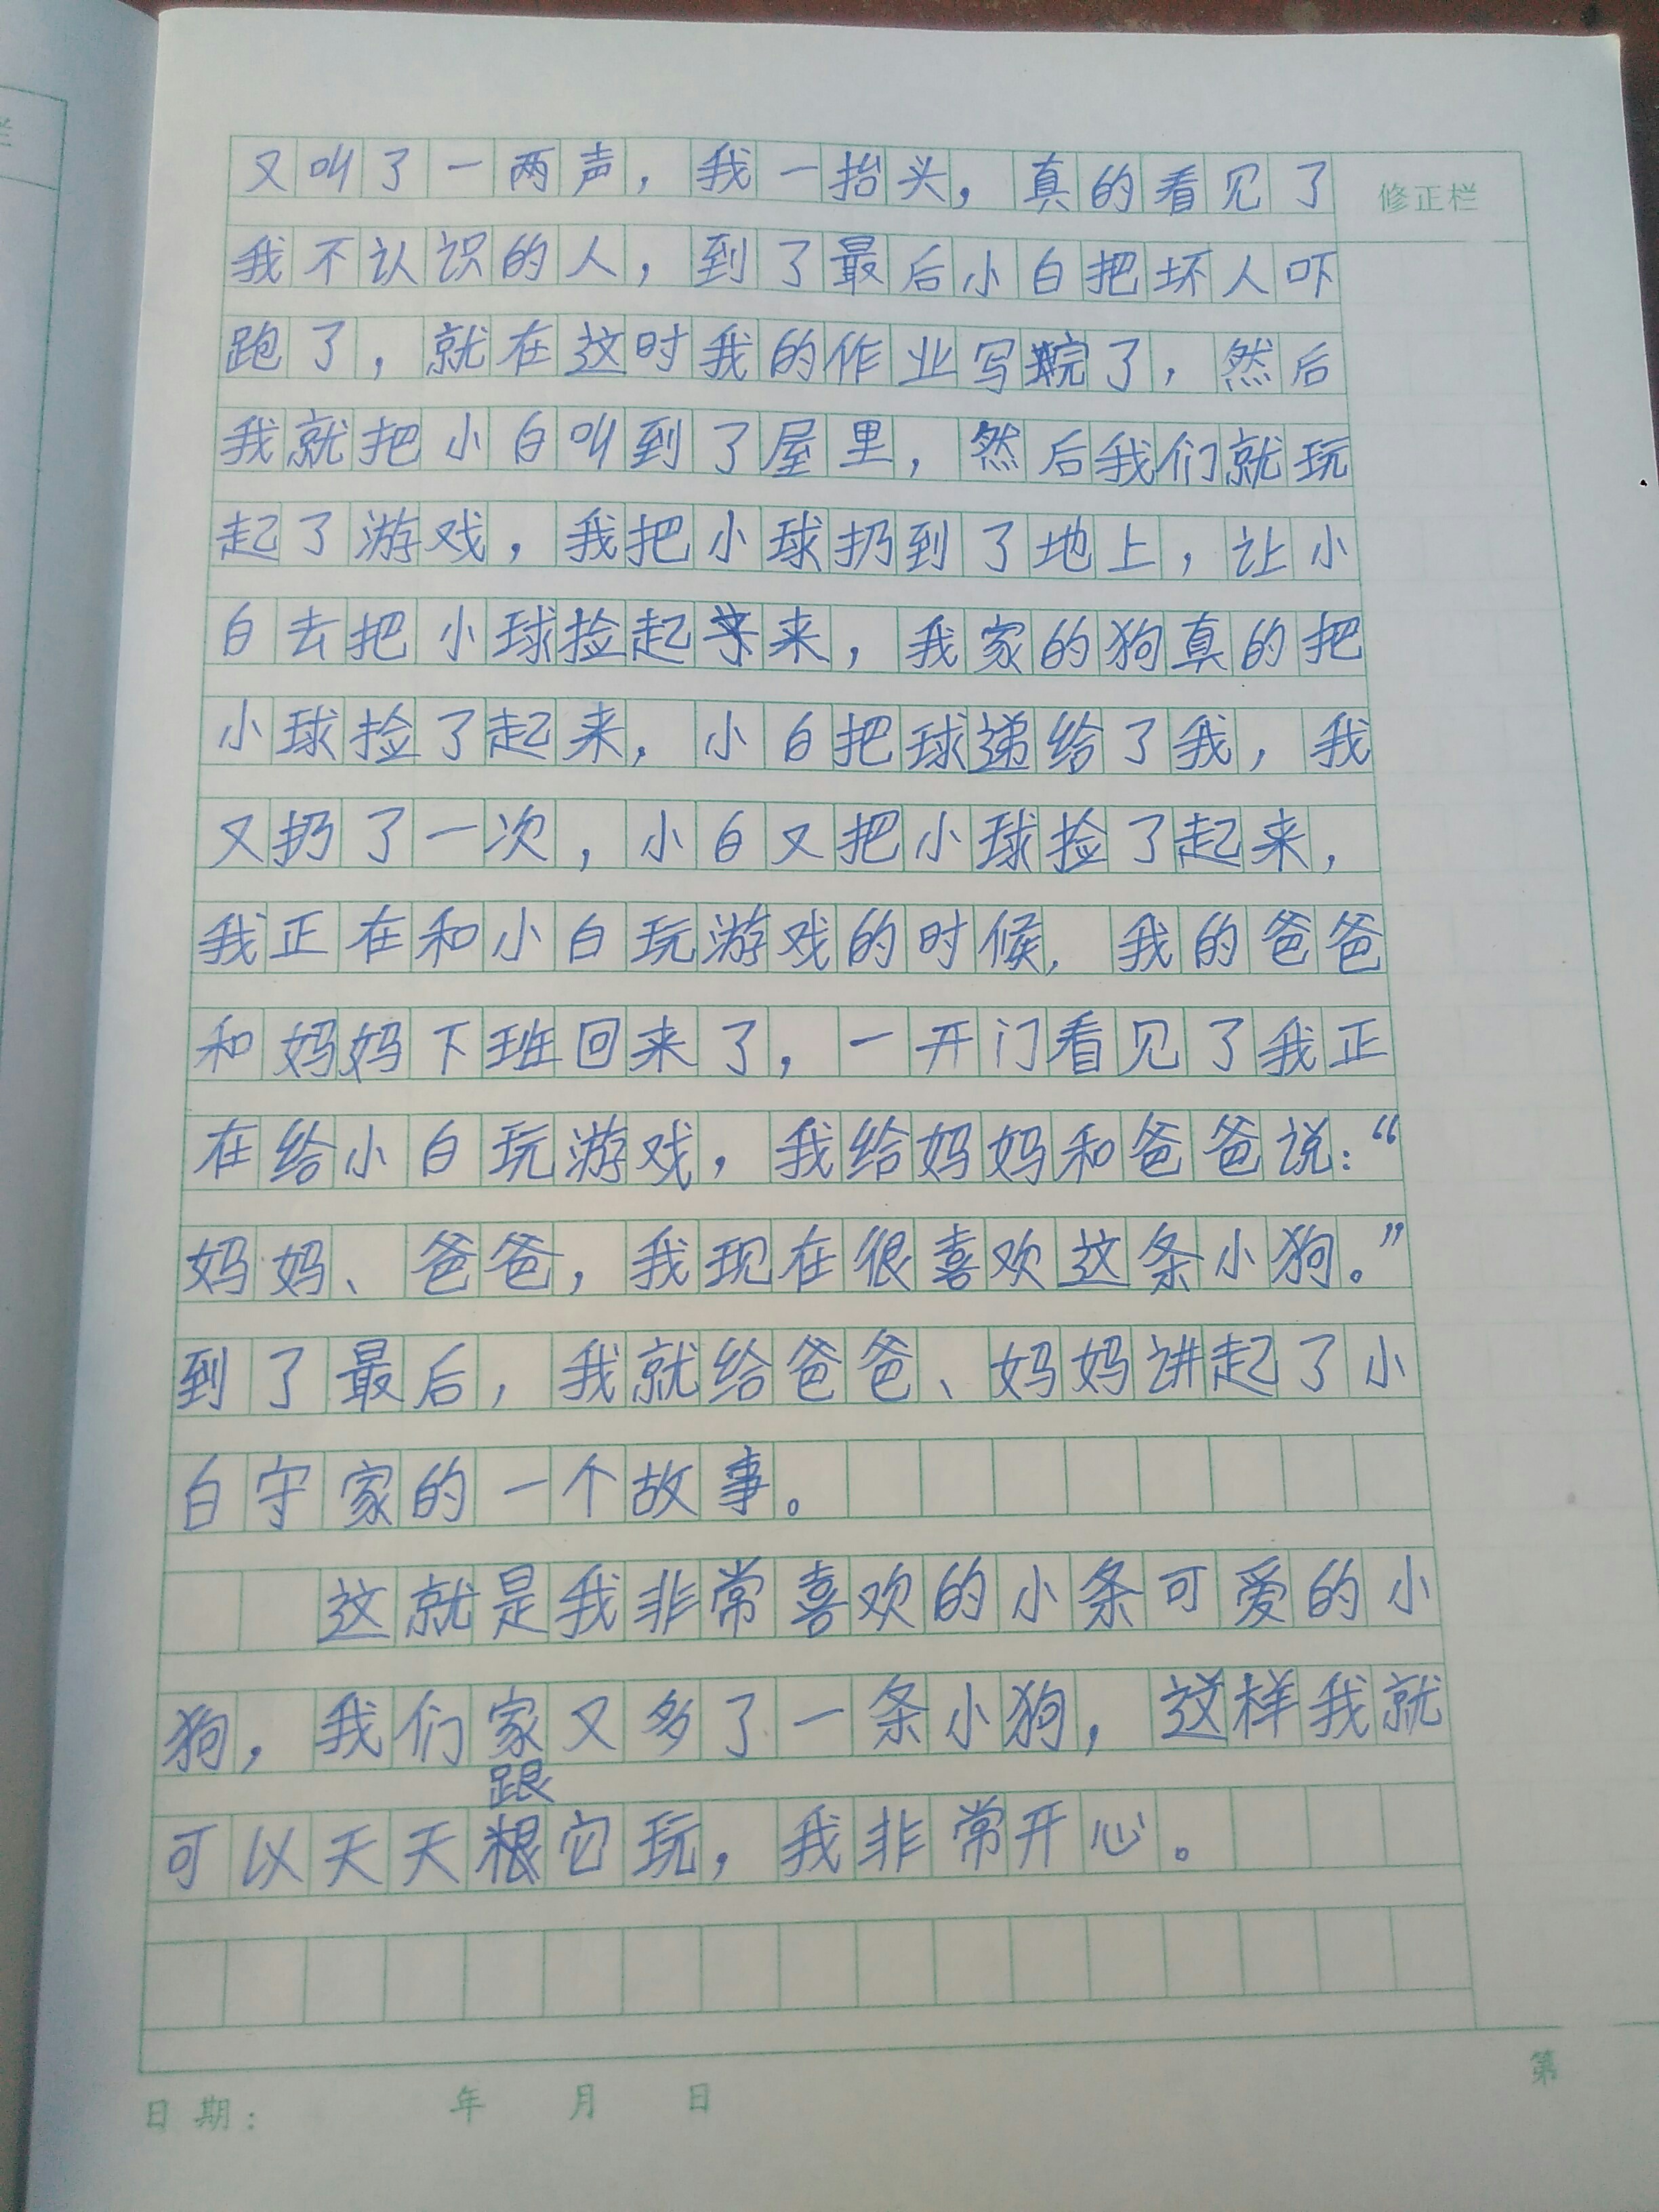 又叫了一两声，我一抬头，真的看见了
修正栏
我不认识的人，到了最后小白把坏人吓
跑了，就在这时我的作业写完了，然后
我就把小白叫到了屋里，然后我们就玩
起了游戏，我把小球扔到了地上，让小
白去把小球捡起来，我家的狗真的把
小球捡了起来，小白把球递给了我，我
又扔了一次，小白又把小球捡了起来，
我正在和小白玩游戏的时候，我的爸爸
和妈妈下班回来了，一开门看见了我正
在给小白玩游戏，我给妈妈和爸爸说：“
妈妈、爸爸，我现在很喜欢这条小狗。”
到了最后，我就给爸爸、妈妈讲起了小
白守家的一个故事。
这就是我非常喜欢的小条可爱的小
狗，我们家又多了一条小狗，这样我就
跟
可以天天根它玩，我非常开心。
日期： 年 月 日
第
栏